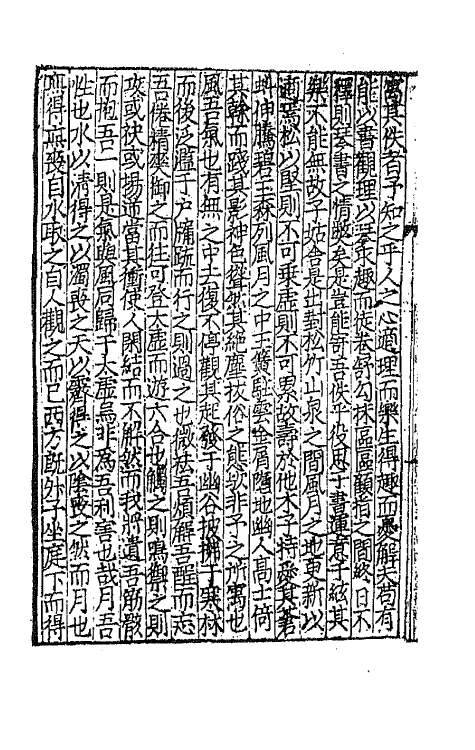 寓其佚者予知之乎人之心適理而樂生得趣而憂解夫苟有
能以書觀理以琴求趣而徒卷舒勾抹區區顧指之間終日不
釋則琴書之情斁矣是豈能寄吾佚乎役思于書運意于絃其
樂不能無故子姑舍是出對松竹山泉之間風月之地更新以
適焉松以堅則不可乗虚則不可累故壽於他木子持愛其蒼
虬伸騰碧玉森列風月之中玉簧駐雲金屑隨地幽人高士倚
其幹而踐其影神色聳然其絶塵抜俗之態歘非予之所寓也
風吾氣也有無之中去復不停觀其起發于幽谷披拂于寒林
而後泛濫于户牖䟽而行之則過之也微袪吾煩解吾酲而志
吾倦精爽御之而往可登太虚而遊六合也觸之則鳴禦之則
攻或袂或揚逎當其衝使人閉結而不解然而我將遺吾筋骸
而抱吾一則是氣與風同歸于太虚烏非為吾利害也哉月吾
性也水以清得之以濁喪之天以霽得之以隂喪之然而月也
無得無喪自水取之自人觀之而已西方既夘子坐庭下而得